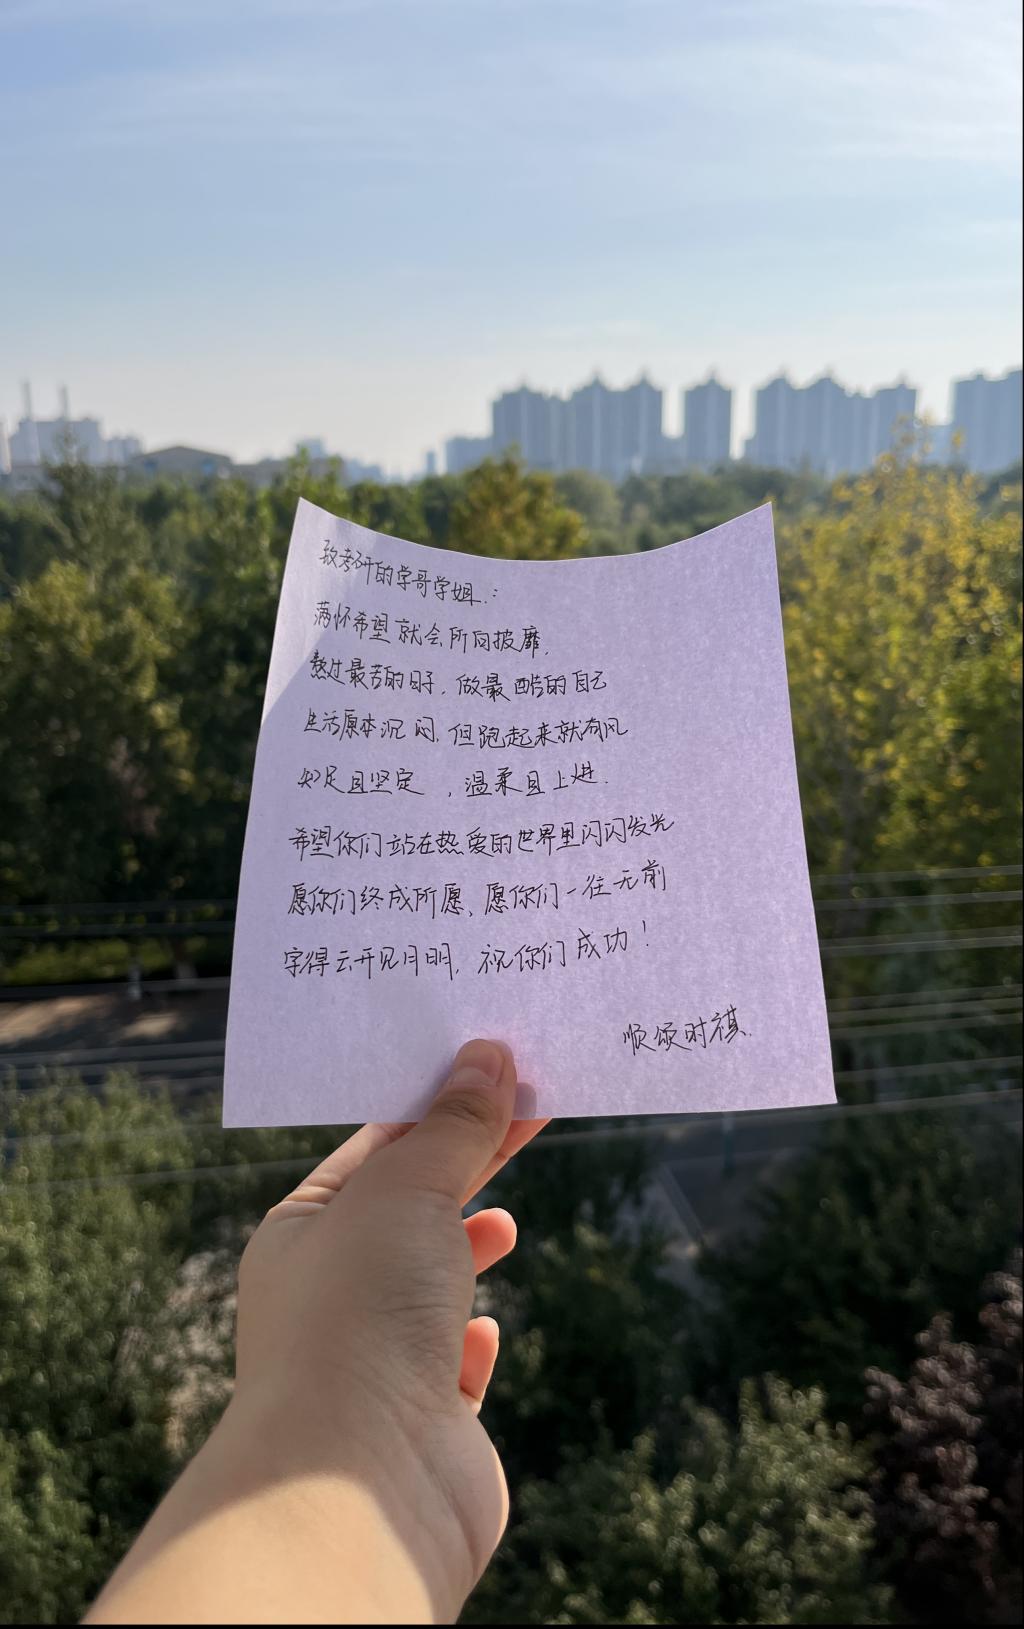 致考研的学哥学姐：
满怀希望就会所向披靡，
熬过最苦的日子，做最酷的自己
生活原本沉闷，但跑起来就有风
知足且坚定，温柔且上进.
希望你们站在热爱的世界里闪闪发光
愿你们终成所愿、愿你们一往无前
守得云开见月明，祝你们成功！
顺颂时祺.